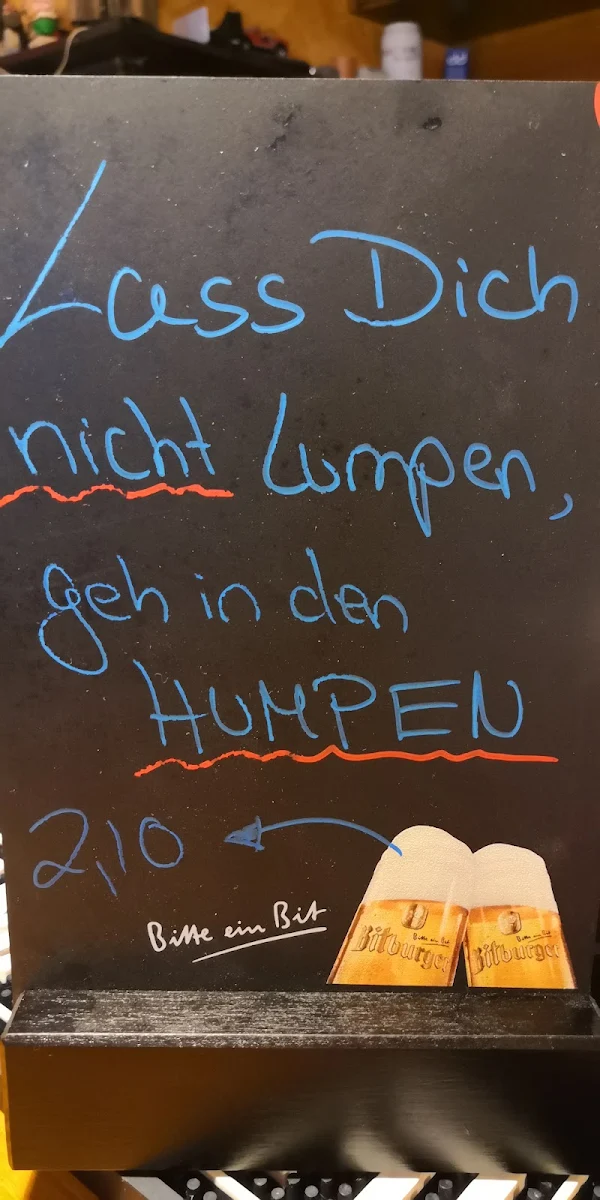 Lass Dich
nicht Lumpen,
geh in den
HUMPEN
2,10
Bitte ein Bit
Bitte ein Bit
Bitburger
Bitte ein Bit
Bitburger